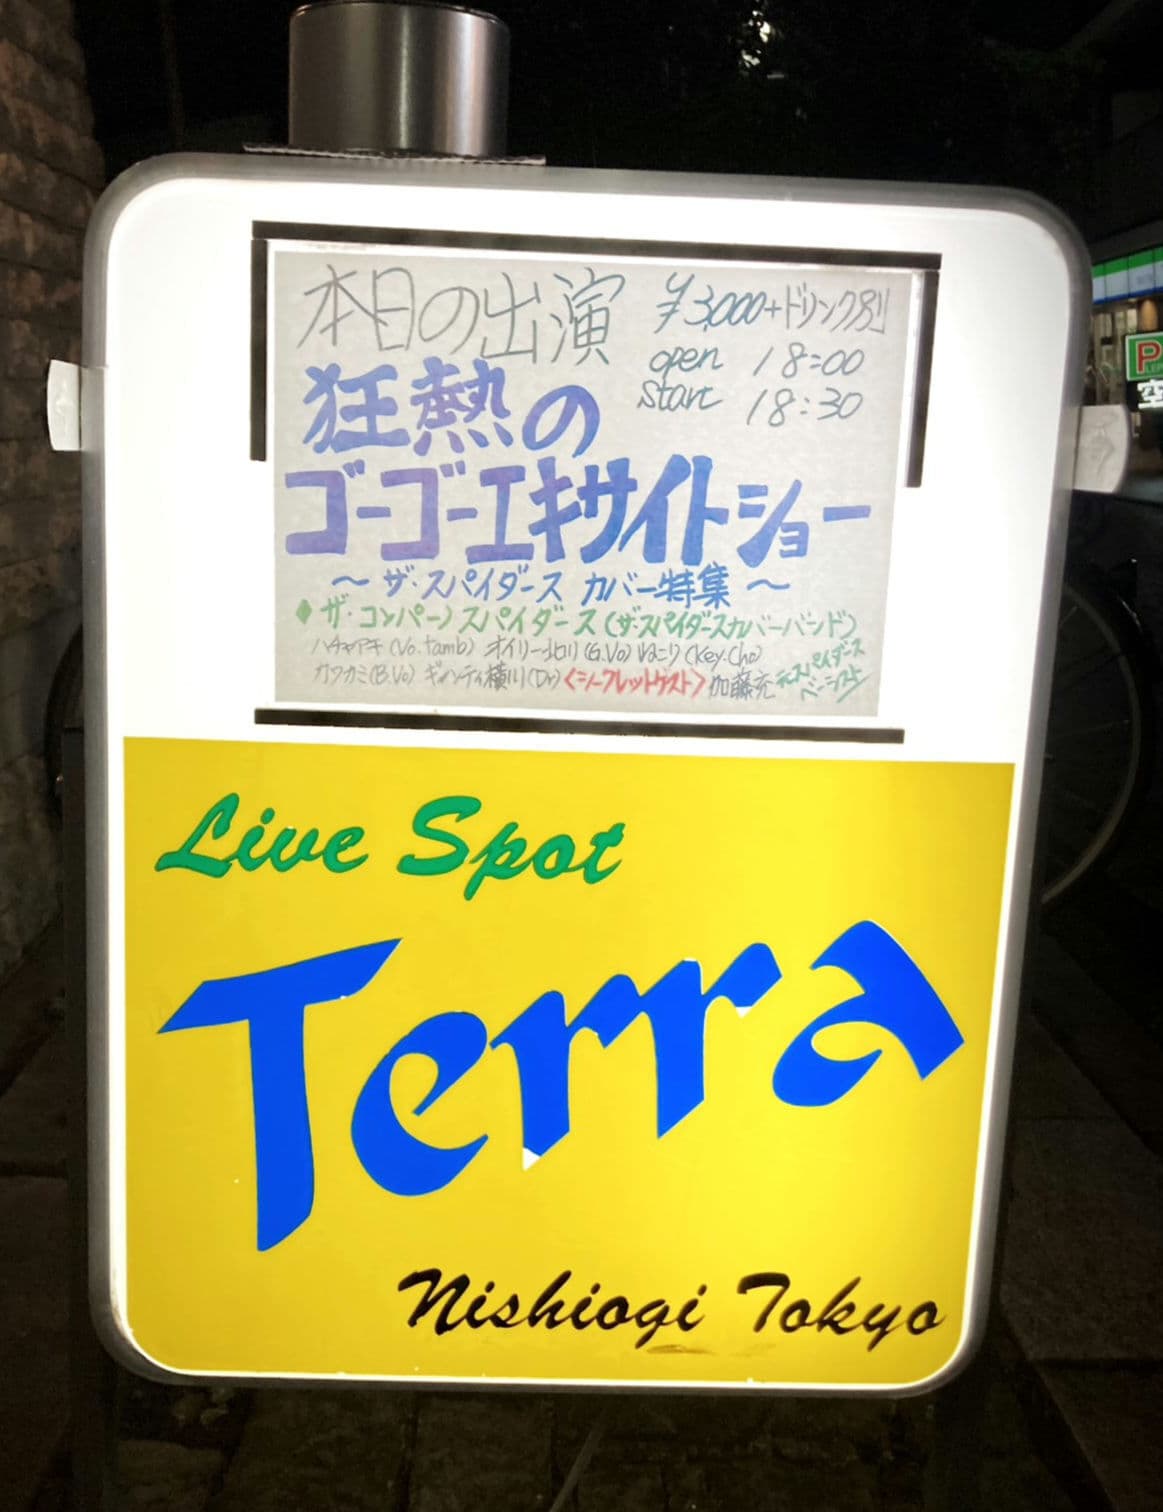 本日の出演
¥3,000+ドリンク別
open 18:00
start 18:30
狂熱の
ゴーゴーエキサイトショー
～ ザ・スパイダース カバー特集 ～
♦ ザ・コンパーノスパイダース (ザ・スパイダースカバーバンド)
ハチャアキ (Vo.tamb) オイリー北川 (G.Vo) ねこり (Key.Cho)
カワカミ (B.Vo) ギハーティ横川 (Dr) 〈シークレットゲスト〉 加藤充
スパイダース
ベーシスト
Live Spot
Terra
Nishiogi Tokyo
P
空